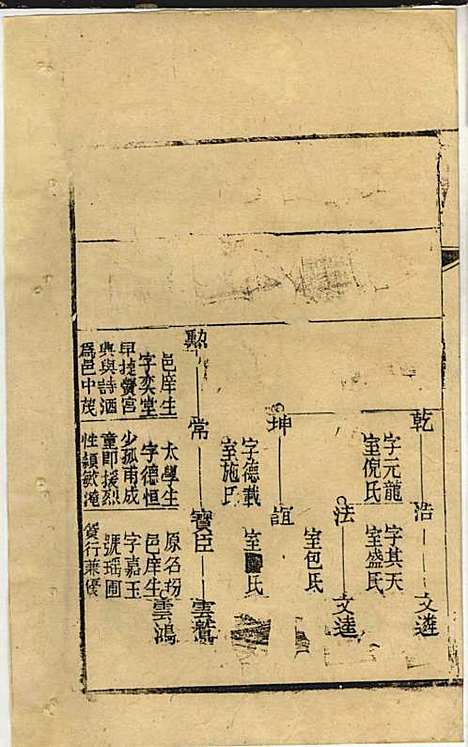 乾 浩 文遴
字元龍 字其天
室倪氏 室盛氏
法 文逵
室包氏
坤 誼
字德載 室 氏
室施氏
勲 常 寳臣 雲鵞
雲鴻
邑庠生 太學生 原名枌
字奕堂 字德恒 邑庠生
早捷黌宮 少孤甫成 字嘉玉
典與詩酒 童即援烈 號瑶圃
爲邑中茂 性頴敏淹 貧行兼優